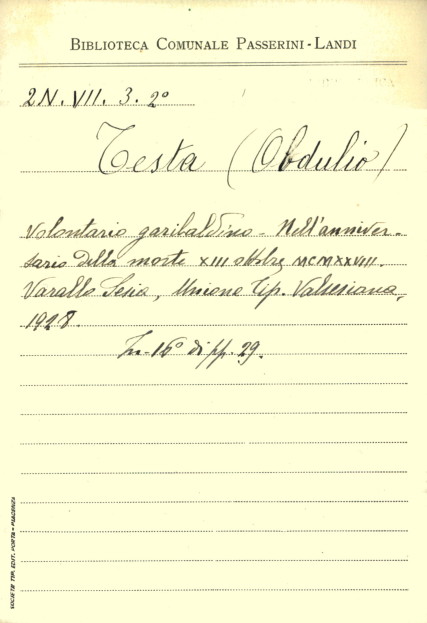 BIBLIOTECA COMUNALE PASSERINI-LANDI
2N. VII. 3. 2º
Testa (Obdulio)
Volontario garibaldino - Nell'anniver-
sario della morte XIII ottobre MCMXXVIII.
Varallo Sesia, Unione Tip. Valsesiana,
1928.
In-16º di pp. 29.
SOCIETÀ TIP. EDIT. PORTA - PIACENZA